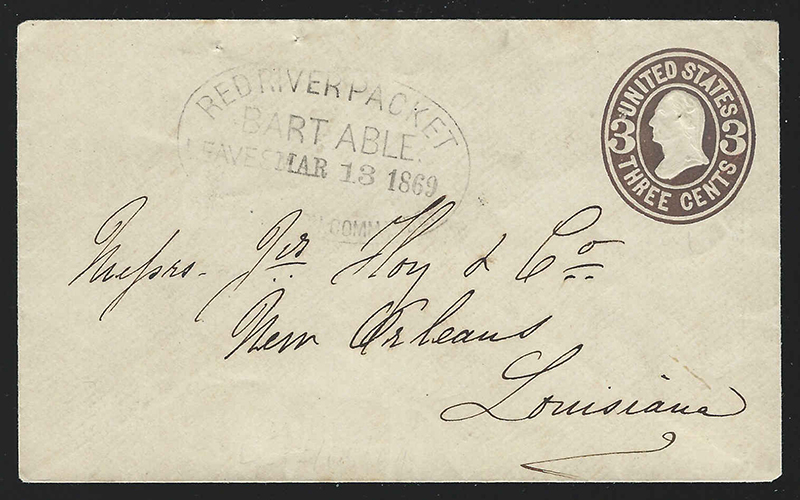 RED RIVER PACKET
BART ABLE.
LEAVES MAR 13 1869
UNITED STATES
3 3
THREE CENTS
Messrs. Jas Hoy & Co
New Orleans
Louisiana